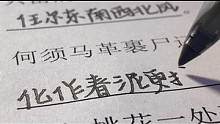 任尔东南西北风
何须马革裹尸
化作春泥更
桃花一处